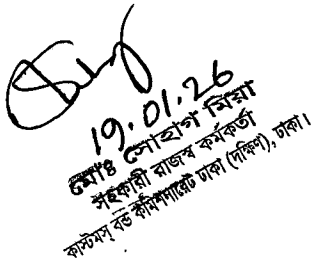 19.01.26
মোঃ সোহাগ মিয়া
সহকারী রাজস্ব কর্মকর্তা
কাস্টমস্ বন্ড কমিশনারেট ঢাকা (দক্ষিণ), ঢাকা।